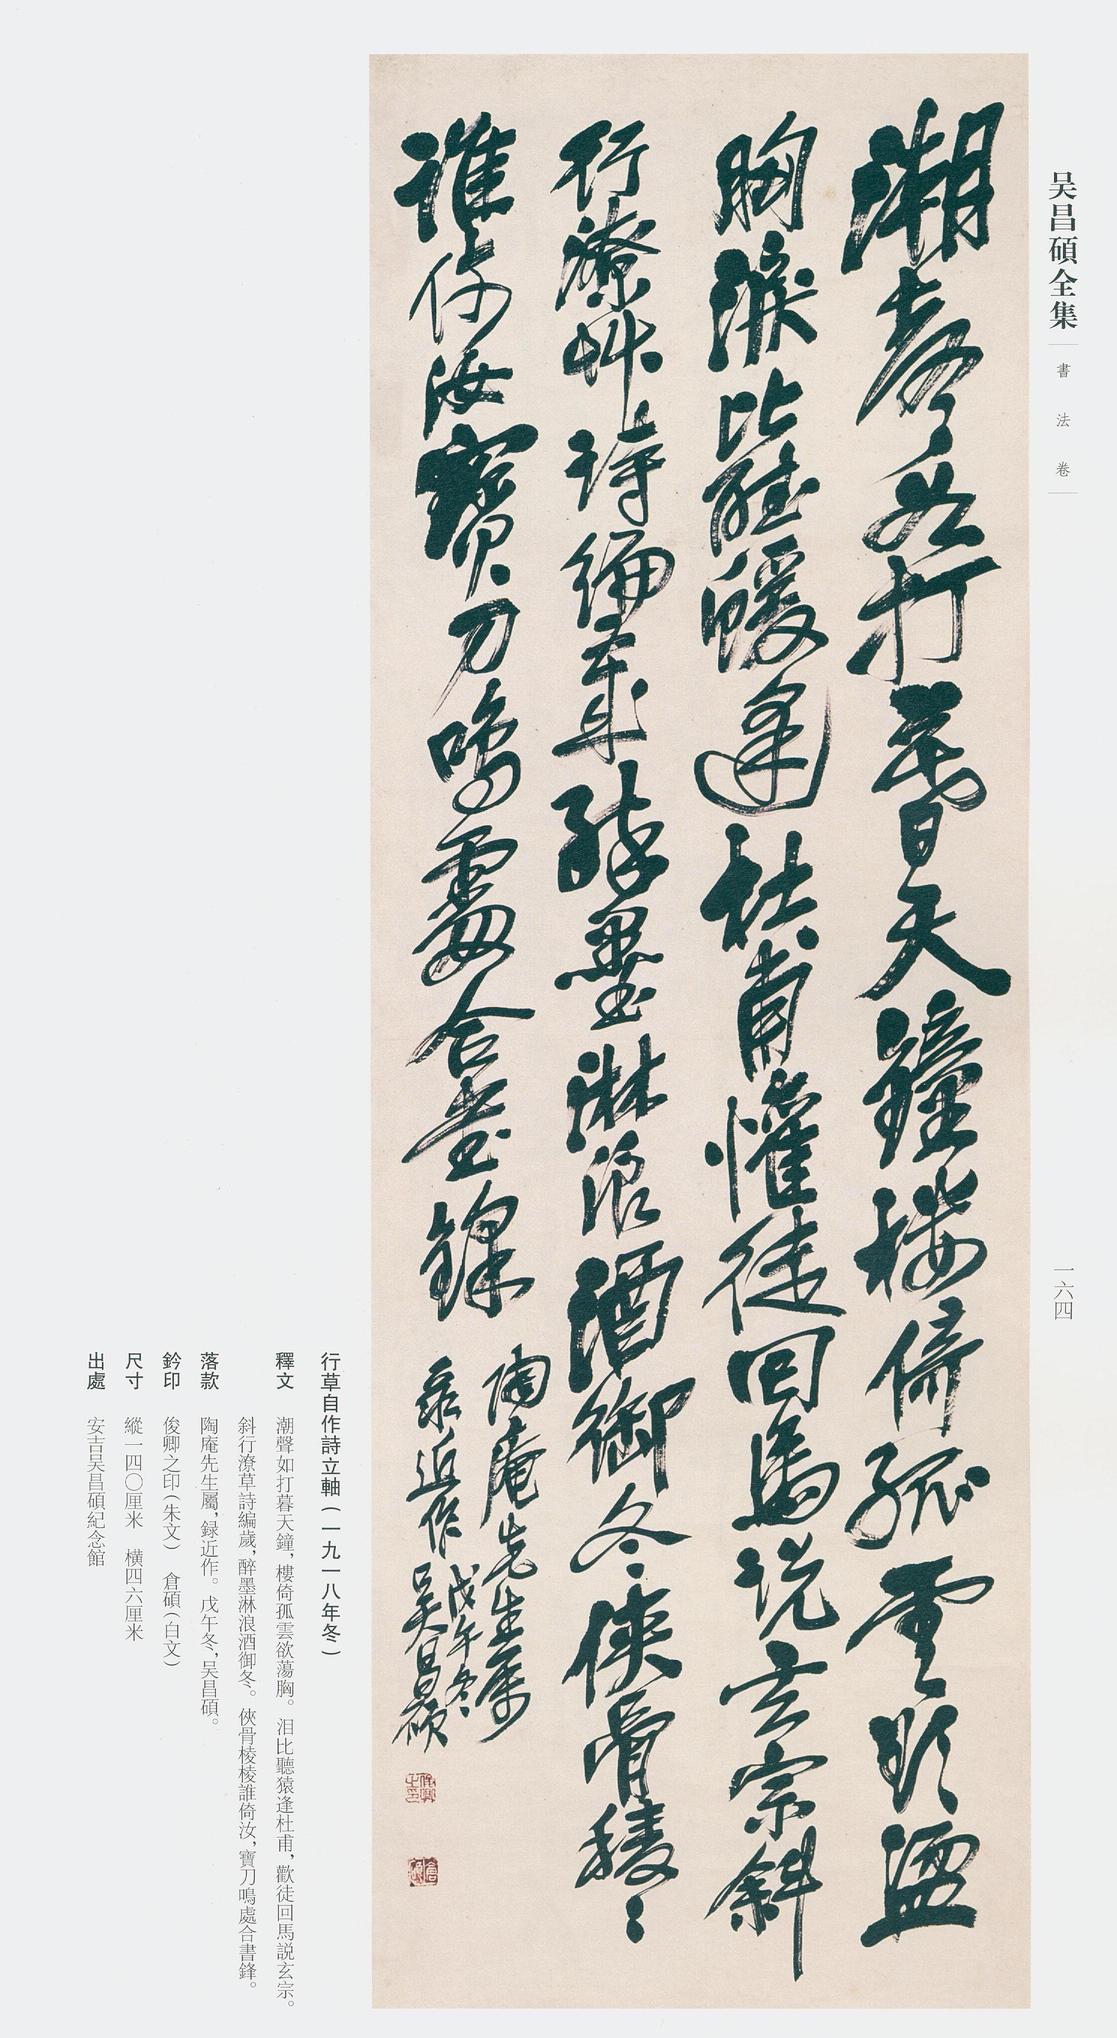 吴昌碩全集
書法卷
一六四
潮聲如打暮天鐘樓倚孤雲欲盪
胸淚比聽猨逢杜甫懽徒回馬説玄宗斜
行潦艸詩編歲醉墨淋浪酒御冬俠骨棱〻
誰倚汝寶刀鳴處合書鋒
陶庵先生屬
彔近作戊午冬
吴昌碩
行草自作詩立軸(一九一八年冬)
釋文 潮聲如打暮天鐘,樓倚孤雲欲蕩胸。泪比聽猿逢杜甫,歡徒回馬説玄宗。
斜行潦草詩編歲,醉墨淋浪酒御冬。俠骨棱棱誰倚汝,寶刀鳴處合書鋒。
落款 陶庵先生屬,録近作。戊午冬,吴昌碩。
鈐印 俊卿之印(朱文) 倉碩(白文)
尺寸 縱一四〇厘米 横四六厘米
出處 安吉吴昌碩紀念館